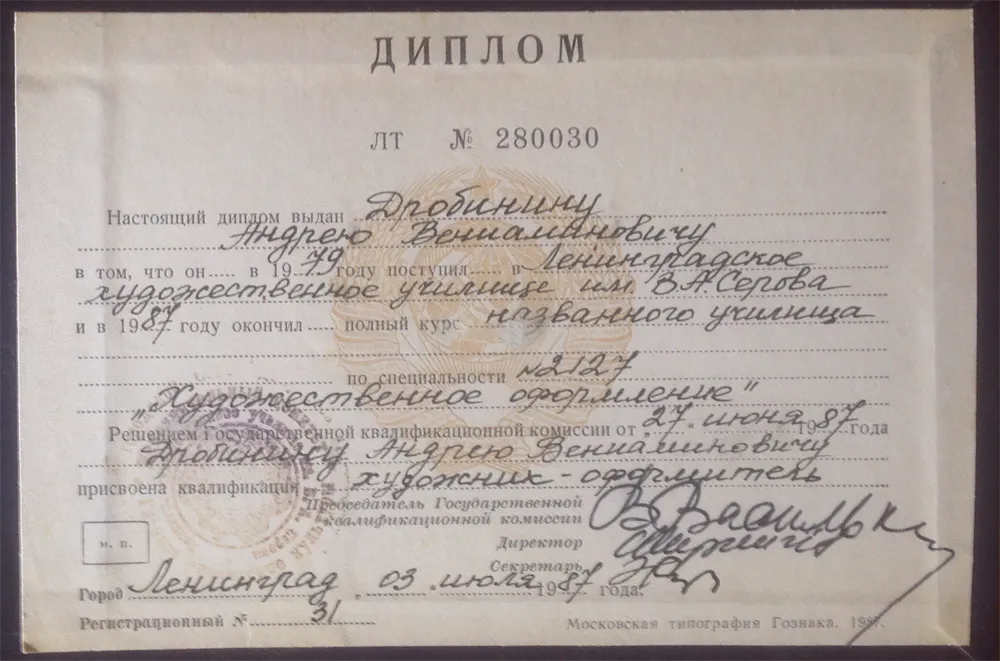 ДИПЛОМ
ЛТ № 280030
Настоящий диплом выдан Дробинину
Андрею Вениаминовичу
в том, что он в 1979 году поступил в Ленинградское
художественное училище им. В.А Серова
и в 1987 году окончил полный курс названного училища
по специальности №2127
"Художественное оформление"
Решением Государственной квалификационной комиссии от 27. июня 1987 года
Дробинину Андрею Вениаминовичу
присвоена квалификация художник-оформитель
Председатель Государственной
квалификационной комиссии
м. п.
Директор
Секретарь
Город Ленинград, 03. июля 1987 года.
Регистрационный № 31
Московская типография Гознака. 1987.